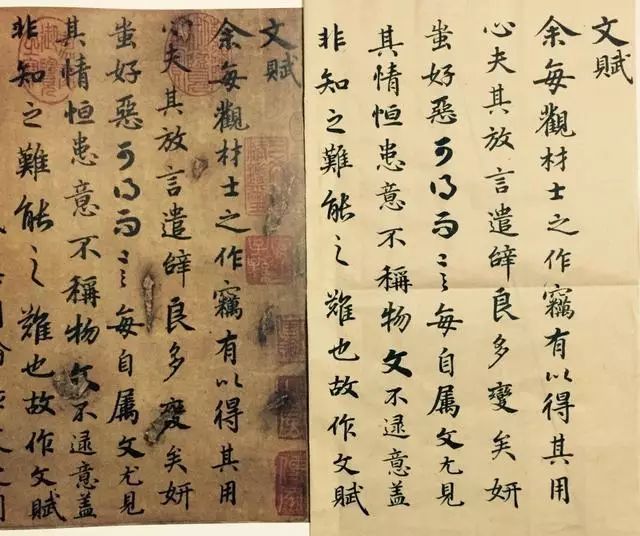 文賦
余每觀材士之作竊有以得其用
心夫其放言遣辭良多變矣妍
蚩好惡可得而言每自属文尤見
其情恒患意不稱物文不逮意盖
非知之難能之難也故作文賦
文賦
余每觀材士之作竊有以得其用
心夫其放言遣辭良多變矣妍
蚩好惡可得而言每自属文尤見
其情恒患意不稱物文不逮意盖
非知之難能之難也故作文賦